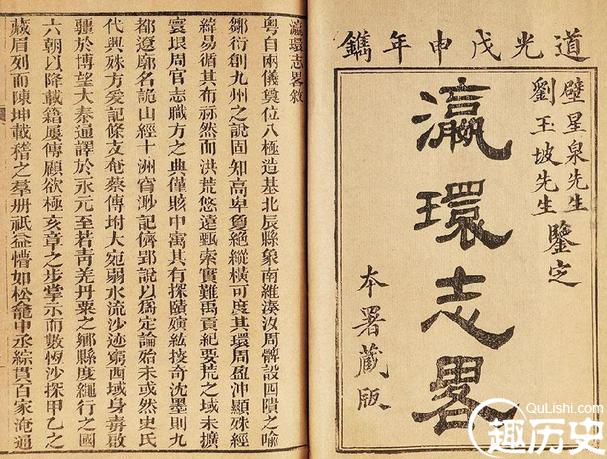 道光戊申年鐫
壁星泉先生
劉玉坡先生
鑒定
瀛環志畧
本署藏版
瀛環志畧敘
粵自兩儀奠位八極造基北辰縣象南維湊汝周髀設四隤之喻
鄒衍創九州之說固知高卑夐絕縱橫可度其環周盈沖顯殊經
緯易循其布祘然而洪荒悠遠甄索實難禹貢紀要荒之域未擴
寰垠周官志職方之典僅賅中寓其有探賾紘披奇沈墨則九
都遼廓名詭山經十洲窅渺記儕郢說以爲定論殆未或然史氏
代興殊方爰記條支奄蔡傳坿大宛弱水流沙迹窮西域身毒啟
疆於博望大秦通譯於永元至若青羌丹粟之鄉縣度繩行之國
六朝以降載籍屢傳顧欲極亥章之步掌示而數恆沙探甲乙之
藏眉列而陳坤載稽之羣冊祇益懵如松龕中丞綜貫百家淹通
QuLishi.com
趣历史